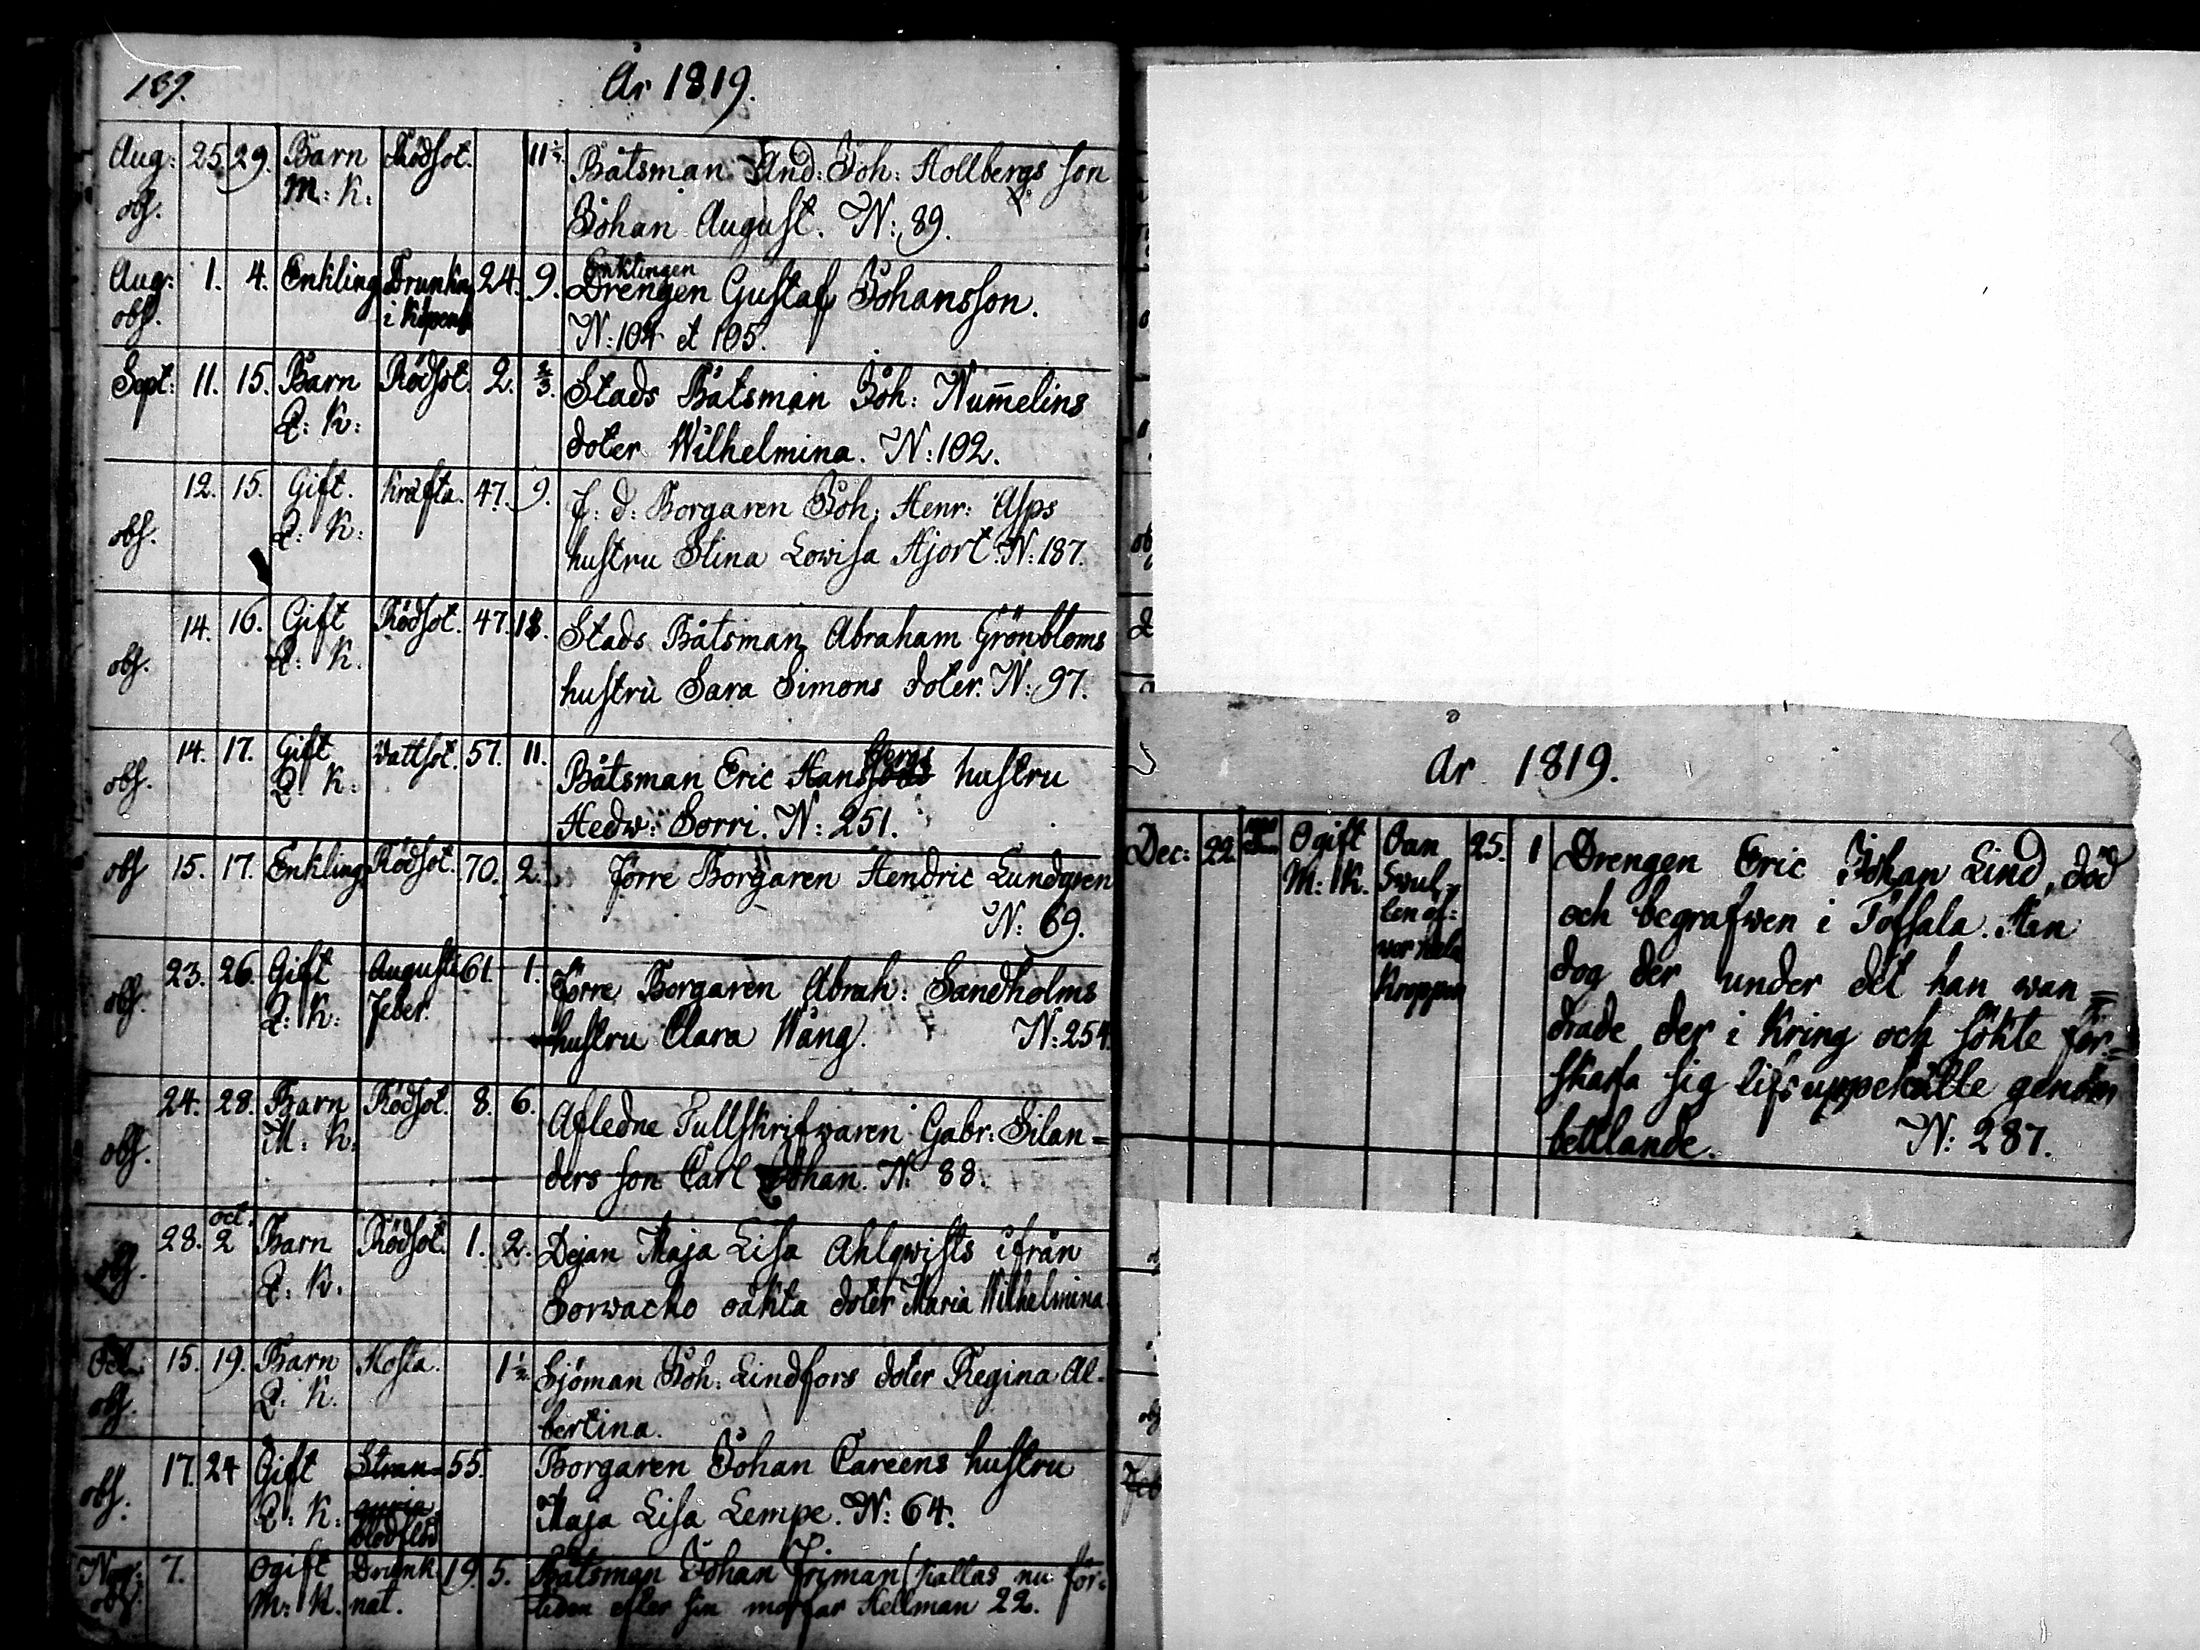 189.
År 1819.
Aug: 25. 29. Barn Rödsot. 11 1/2. Båtsman And: Joh: Hollbergs son
obs. M: K: Johan August. N: 89.
Enklingen
Aug: 1. 4. Enkling Drunkn 24. 9. Drengen Gustaf Johansson.
obs. i Köpenh N: 104 et 105.
Sept: 11. 15. Barn Rödsot. 2. 2/3. Stads Båtsman Joh: Num̄elins
Q: K: doter Wilhelmina. N: 102.
12. 15. Gift. Kräfta. 47. 9. f: d: Borgaren Joh: Henr: Asps
obs. Q: K: hustru Stina Lowisa Hjort. N: 187.
14. 16. Gift Rödsot. 47. Stads Båtsman Abraham Grönbloms
obs. Q: K. hustru Sara Simons doter. N: 97.
14. 17. Gift Wattsot. 57. 11. Båtsman Eric hustru
obs. Q: K: Hedw: Sorri. N: 251.
obs 15. 17. Enkling Rödsot. 70. 2. förre Borgaren Hendric Lundgren
N: 69.
23. 26. Gift Augusti 61. 1. förre Borgaren Abrah: Sandholms
obs. Q: K: feber. hustru Clara Wång. N: 254.
24. 28. Barn Rödsot. 8. 6. Afledne Tullskrifwaren Gabr: Silan=
obs. M: K: ders son Carl Johan. N: 88.
oct.
28. 2 Barn Rödsot. 1. 2. Dejan Maja Lisa Ahlqwists ifrån
obs. Q: K. Sorwacko oäkta doter Maria Wilhelmina.
Oct: 15. 19. Barn Hosta. 1 1/2. Sjöman Joh: Lindfors doter Regina Al-
obs. Q: K. bertina.
17. 24 Gift Stran= 55. Borgaren Johan Careens hustru
obs. Q: K: guria Maja Lisa Lempe. N: 64.
blodflod
7. Ogift Drunk 19. 5. Båtsman Johan Friman (kallas nu för=
obs. M: K. nat. tiden efter sin morfar Hellman 22.
År 1819.
Dec: 22 Ogift Oan 25. 1 Drengen Eric Johan Lind, död
M: K. Swul= och begrafwen i Töfsala. Han
len öf= dog der under det han wan=
wer hela drade der i kring och sökte för=
Kroppen skaffa sig lifsuppehälle genom
bettlande. N: 287.